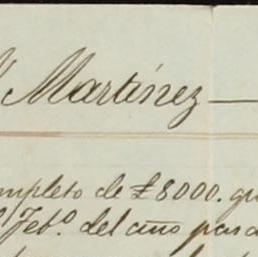 Martínez
mpleto de £8000. qu
Feb.º del año pasa